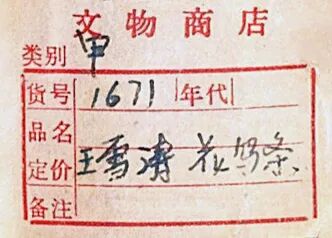 文物商店
类别 甲
货号 1671 年代
品名 王雪涛 花鸟条
定价
备注